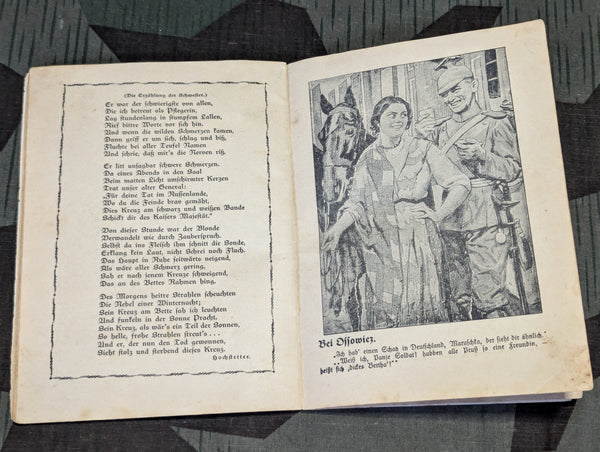 (Die Erzählung der Schwester.)
Er war der schwierigste von allen,
Die ich betreut als Pflegerin,
Lag stundenlang in stumpfem Lallen,
Rief bittre Worte vor sich hin.
Und wenn die wilden Schmerzen kamen,
Dann griff er um sich, schlug und biß,
Fluchte bei aller Teufel Namen
Und schrie, daß mir's die Nerven riß.
Er litt unsagbar schwere Schmerzen.
Da eines Abends in den Saal
Beim matten Licht umschirmter Kerzen
Trat unser alter General:
„Für deine Tat im Russenlande,
Wo du die Feinde brav gemäht,
Dies Kreuz am schwarz und weißen Bande
Schickt dir des Kaisers Majestät.“
Von dieser Stunde war der Blonde
Verwandelt wie durch Zauberspruch.
Selbst da ins Fleisch ihm schnitt die Sonde,
Erklang kein Laut, nicht Schrei noch Fluch.
Das Haupt in Ruhe seitwärts neigend,
Als wäre aller Schmerz gering,
Sah er nach jenem Kreuze schweigend,
Das an des Bettes Rahmen hing.
Des Morgens heitre Strahlen scheuchten
Die Nebel einer Winternacht;
Sein Kreuz am Bette sah ich leuchten
Und funkeln in der Sonne Pracht.
Sein Kreuz, als wär's ein Teil der Sonnen,
So helle, frohe Strahlen streut's . . .
Und er, der nun den Tod gewonnen,
Sieht stolz und sterbend dieses Kreuz.
Hochstetter.
Bei Ossowiez.
„Ich hab' einen Schatz in Deutschland, Maruschka, der sieht dir ähnlich.“
„Weiß ich, Panje Soldat! habben alle Preuß so eine Freundin,
heißt sich ‚dicke Bertha‘!“